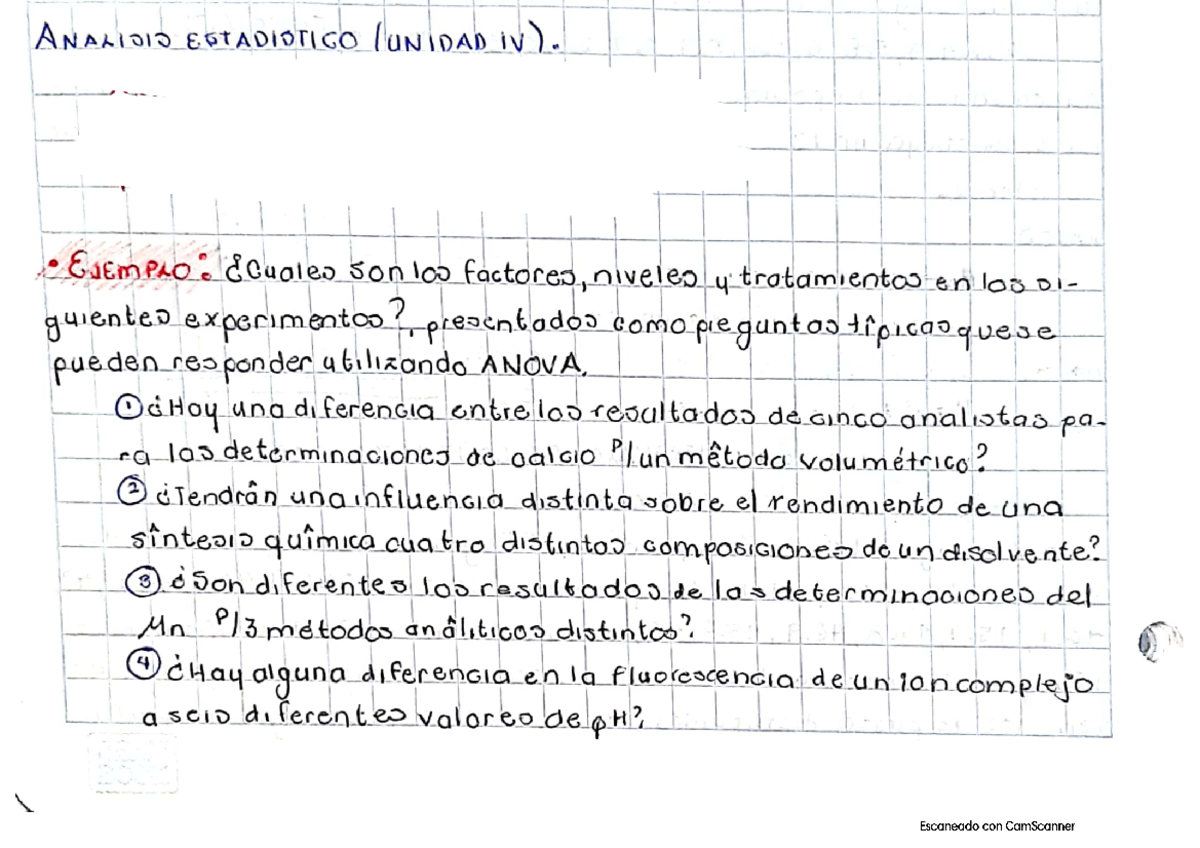 ANALISIS ESTADISTICO (UNIDAD IV).
• EJEMPLO: ¿Cuales son los factores, niveles y tratamientos en los si-
guientes experimentos?, presentados como preguntas típicas que se
pueden responder utilizando ANOVA.
① ¿Hay una diferencia entre los resultados de cinco analistas pa-
ra las determinaciones de calcio P/un método volumétrico?
② ¿Tendrán una influencia distinta sobre el rendimiento de una
síntesis química cuatro distintas composiciones de un disolvente?
③ ¿Son diferentes los resultados de las determinaciones del
Mn P/3 métodos análiticos distintos?
④ ¿Hay alguna diferencia en la fluorescencia de un ion complejo
a seis diferentes valores de pH?
Escaneado con CamScanner